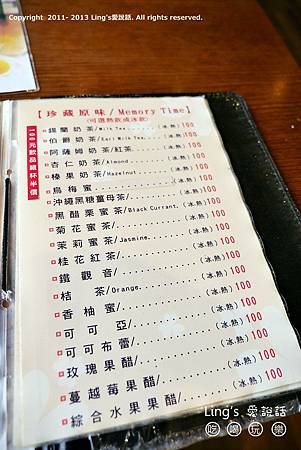 Copyright 2011- 2013 Ling's愛說話. All rights reserved.
【 珍藏原味/Memory Time】
(可選熱飲或冰飲)
100元飲品續杯半價
錫蘭奶茶/Milk Tea.......(冰.熱)100
伯爵奶茶/Earl Milk Tee....(冰.熱)100
阿薩姆奶茶/紅茶..........(冰.熱)100
杏仁奶茶/Almond..........(冰.熱)100
榛果奶茶/Hazelnut........(冰.熱)100
烏梅蜜...................(冰.熱)100
沖繩黑糖薑母茶/..........(冰.熱)100
黑醋栗蜜茶/Black Currant.(冰.熱)100
菊花蜜茶/................(冰.熱)100
茉莉蜜茶/Jasmine.........(冰.熱)100
桂花紅茶/................(冰.熱)100
鐵觀音/..................(冰.熱)100
桔茶/Orange..............(冰.熱)100
香柚蜜/..................(冰.熱)100
可可亞/..................(冰.熱)100
可可布蕾/................(冰.熱)100
玫瑰果醋/................(冰.熱)100
蔓越莓果醋/..............(冰.熱)100
綜合水果果醋/............(冰.熱)100
Ling's 愛說話
吃喝玩樂